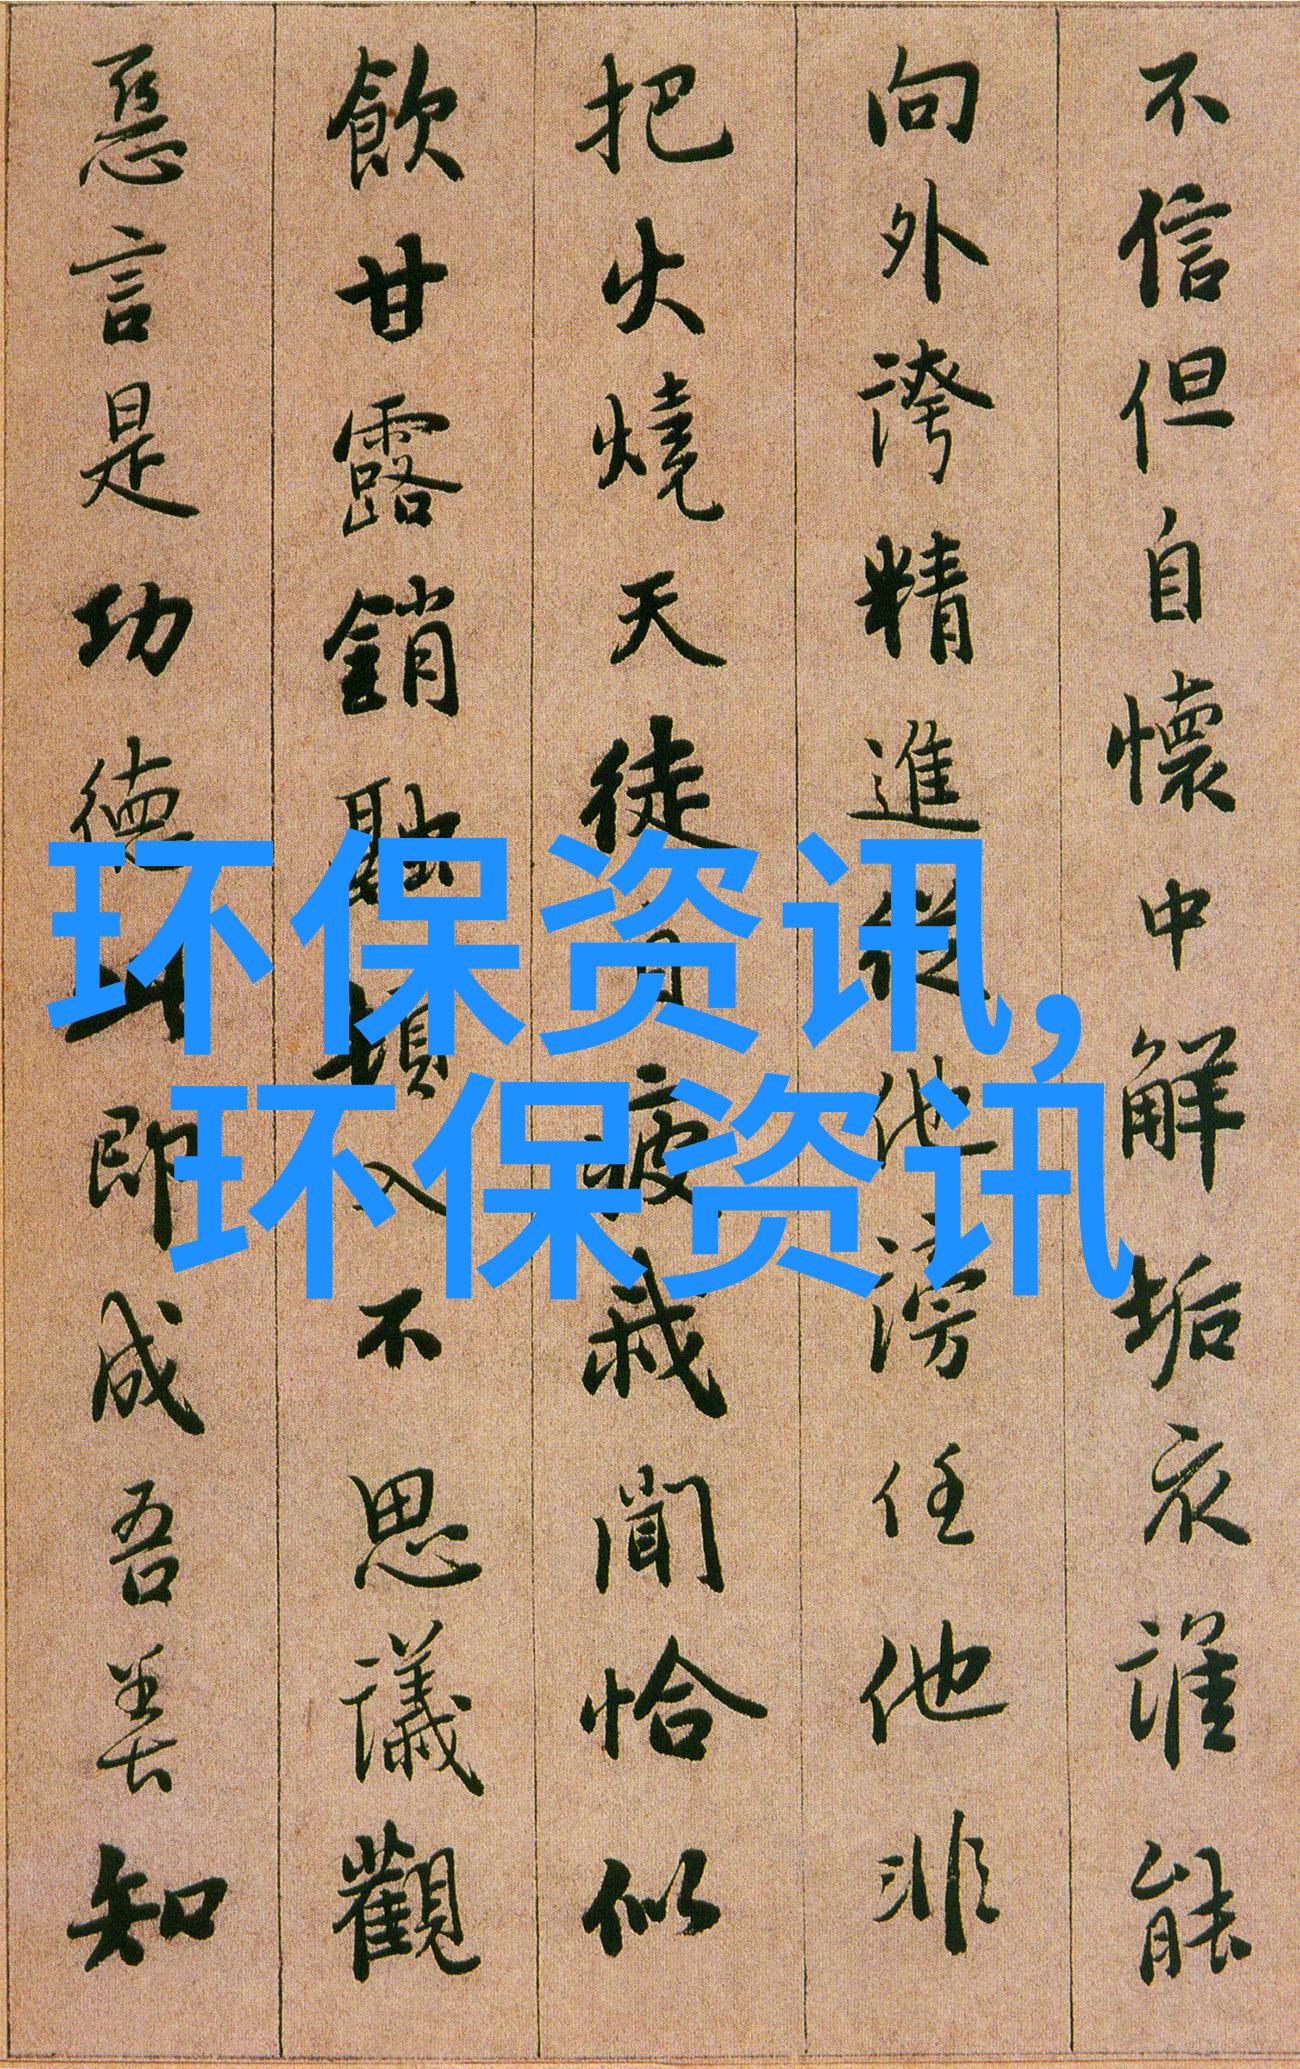 不信但自懷中解垢衣誰能
向外誇精進從他謗任他非
把火燒天徒自疲我聞恰似
飲甘露銷融頓入不思議觀
惡言是功德此即成吾善知
环保资讯,
环保资讯